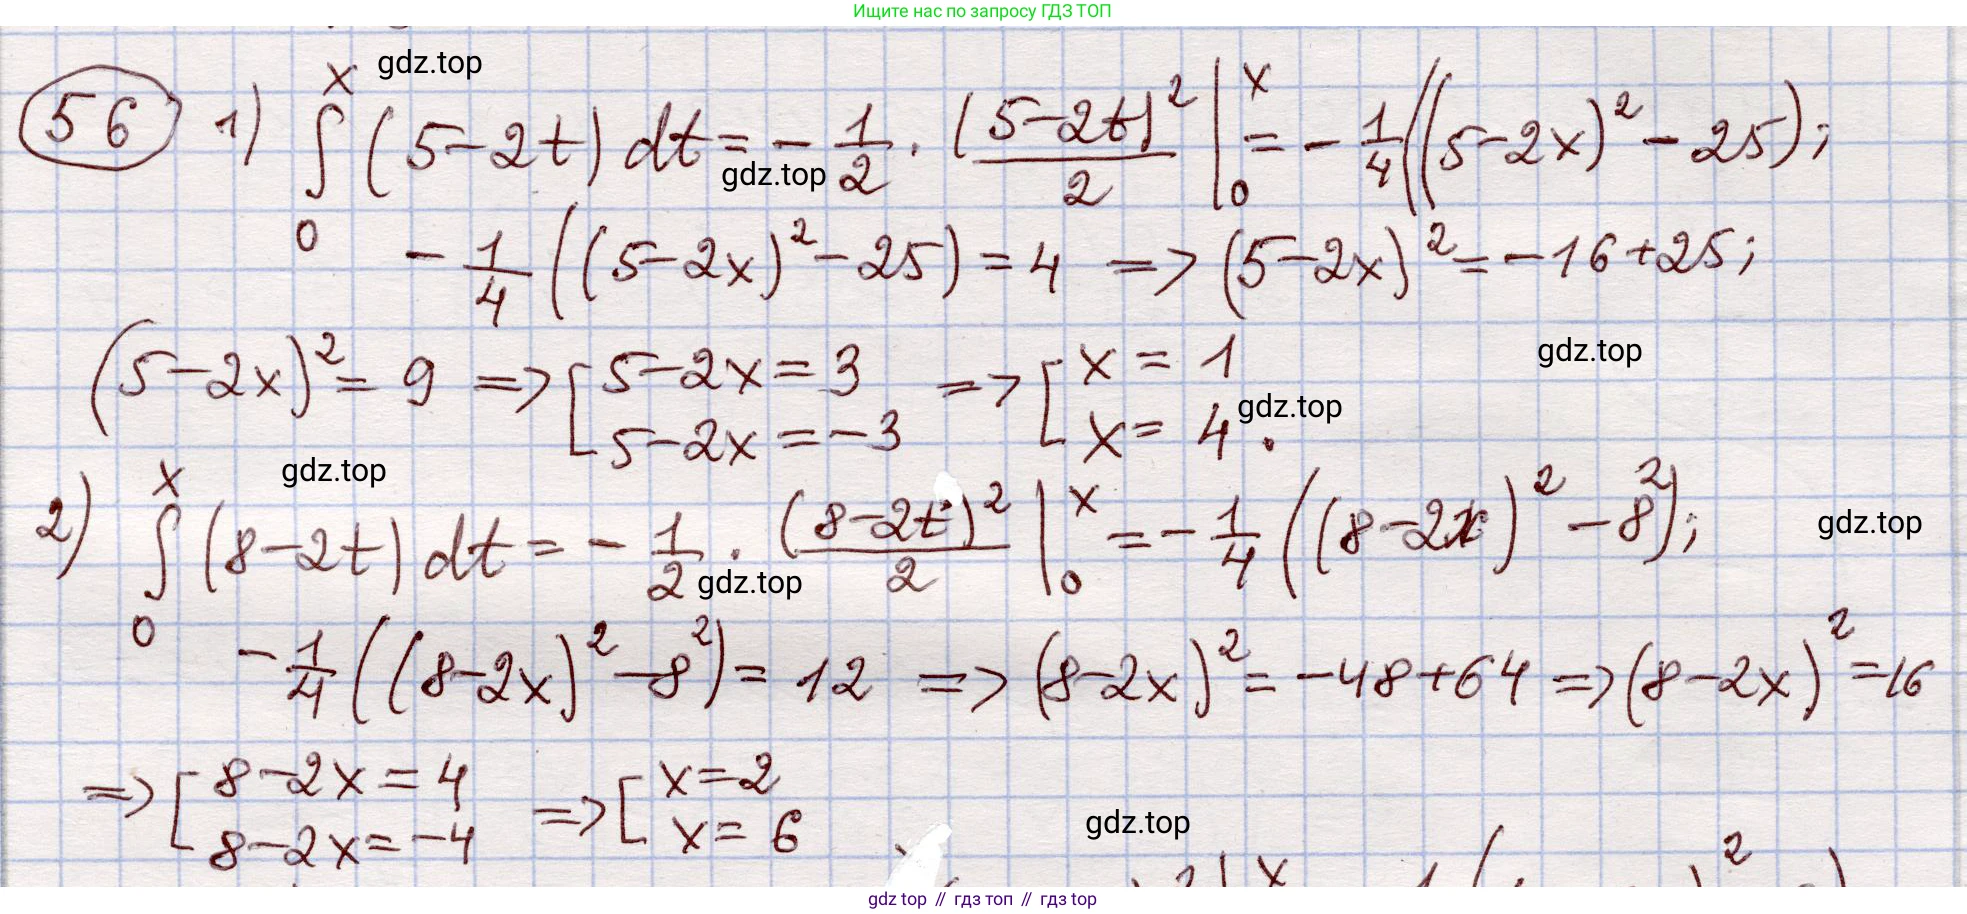 Ищите нас по запросу ГДЗ ТОП
gdz.top
56 1) ∫₀ˣ (5-2t) dt = - 1/2 · (5-2t)²/2 |₀ˣ = - 1/4 ((5-2x)² - 25);
gdz.top
- 1/4 ((5-2x)² - 25) = 4 => (5-2x)² = -16+25;
(5-2x)² = 9 => [ 5-2x = 3 => [ x = 1
5-2x = -3 x = 4.
gdz.top
gdz.top
gdz.top
2) ∫₀ˣ (8-2t) dt = - 1/2 · (8-2t)²/2 |₀ˣ = - 1/4 ((8-2x)² - 8²);
gdz.top
gdz.top
- 1/4 ((8-2x)² - 8²) = 12 => (8-2x)² = -48+64 => (8-2x)² = 16
=> [ 8-2x = 4 => [ x = 2
8-2x = -4 x = 6
gdz.top
gdz.top // гдз топ // гдз top